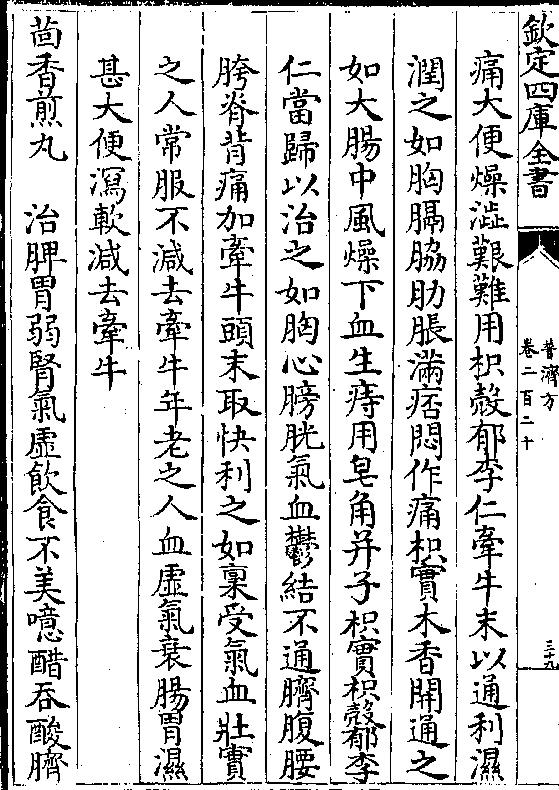 欽定四庫全書
普濟方
卷二百二十
三十九
痛大便燥澁艱難用枳殼郁李仁牽牛末以通利濕
潤之如胸膈脇肋脹滿痞悶作痛枳實木香開通之
如大腸中風燥下血生痔用皂角并子枳實枳殼郁李
仁當歸以治之如胸心膀胱氣血鬱結不通臍腹腰
胯脊背痛加牽牛頭末取快利之如稟受氣血壯實
之人常服不減去牽牛年老之人血虛氣衰腸胃濕
甚大便瀉軟減去牽牛
茴香煎丸　治脾胃弱腎氣虛飲食不美噫醋吞酸臍